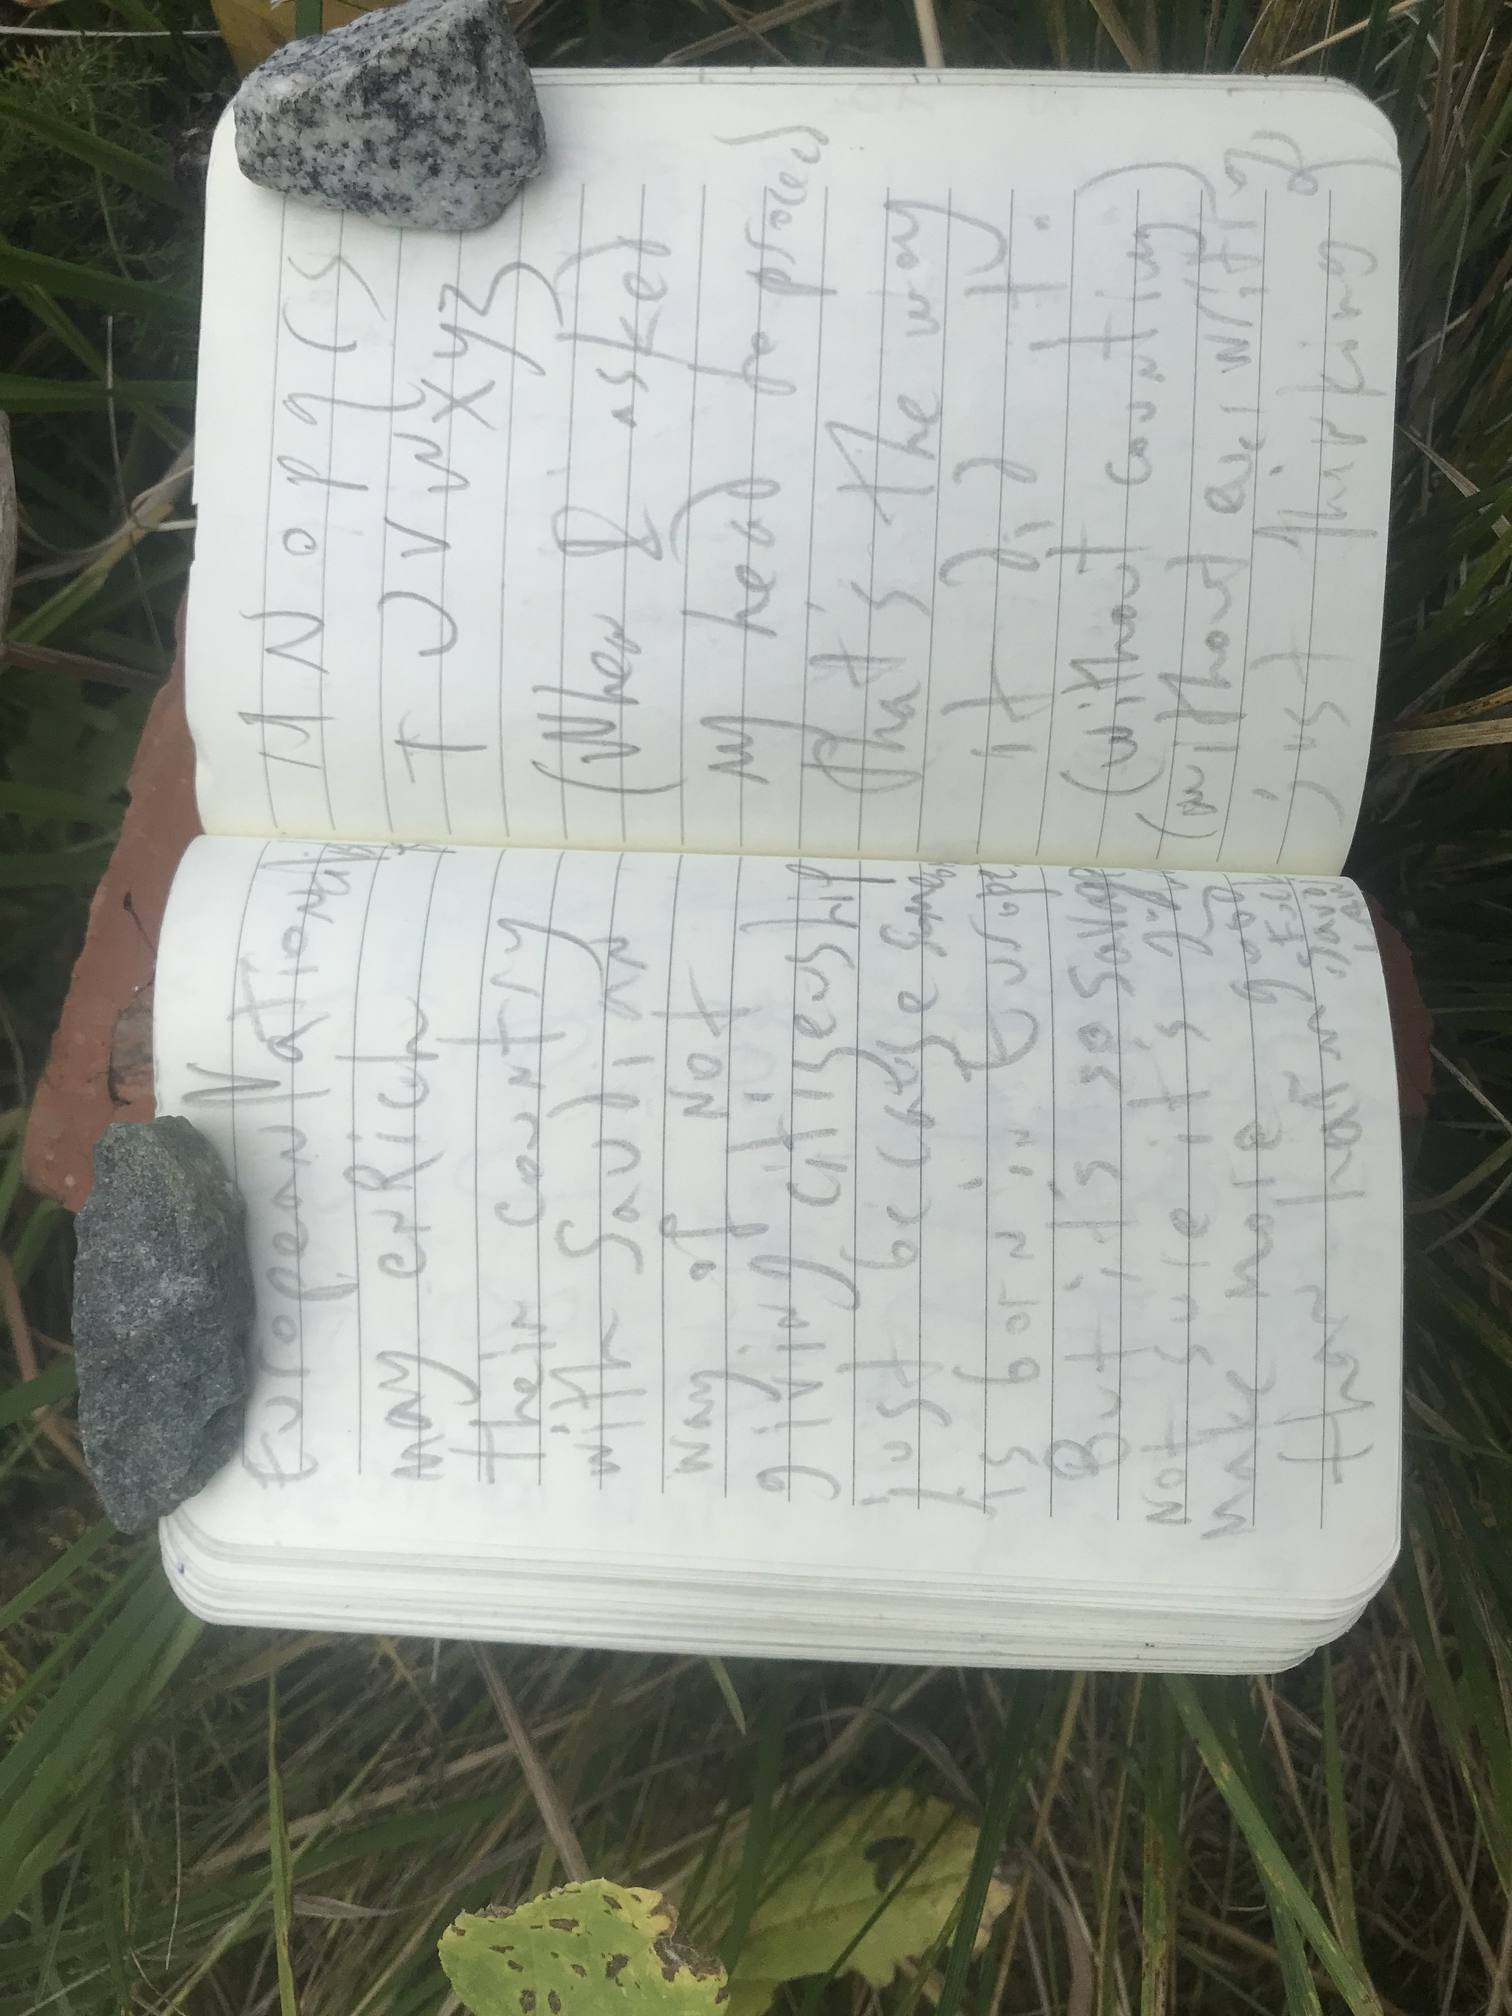 European Nationality
may enRich
their country
with Saudian
way of Not
giving citisenship
just because someone
is born in Europe
But it's so
Not sure it's
make more good
than harm
M N O P q r s
T U V W X Y Z
(When I asked
my head to proceed
that's the way
it did it.
(without counting)
(without even writing)
just thinking of